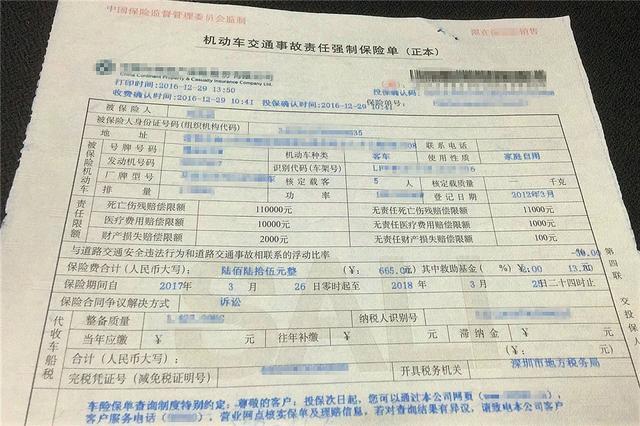 中国保险监督管理委员会监制
限在 销售
机动车交通事故责任强制保险单 (正本)
China Continent Property & Casualty Insurance Company Ltd.
打印时间:2016-12-29 13:50
投保确认码:
收费确认时间:2016-12-29 10:41 投保确认时间:2016-12-29 保险单号:
被保险人
被保险人身份证号码(组织机构代码) 35
地址 联系电话
被保险机动车
号牌号码 机动车种类 客车 使用性质 家庭自用
发动机号码 识别代码(车架号)
厂牌型号 核定载客 5 人 核定载质量 千克
排量 功率 登记日期 2012年3月
责任限额
死亡伤残赔偿限额 110000元 无责任死亡伤残赔偿限额 11000元
医疗费用赔偿限额 10000元 无责任医疗费用赔偿限额 1000元
财产损失赔偿限额 2000元 无责任财产损失赔偿限额 100元
与道路交通安全违法行为和道路交通事故相联系的浮动比率
保险费合计(人民币大写): 陆佰陆拾伍元整 (¥: 665.00 其中救助基金( %)¥:
保险期间自 2017年 3 月 26 日零时起至 2018 年 3 月 日二十四时止
保险合同争议解决方式 诉讼
代收车船税
整备质量 纳税人识别号
当年应缴 ¥ 元 往年补缴 ¥ 元 滞纳金 ¥ 元
合计(人民币大写): (¥: 元)
完税凭证号(减免税证明号) 开具税务机关 深圳市地方税务局
第四联 交投保人
车险保单查询制度特别约定:尊敬的客户:投保次日起,您可以通过本公司网页(
客户服务电话( )、营业网点核实保单及理赔信息,若对查询结果有异议,请致电本公司客户